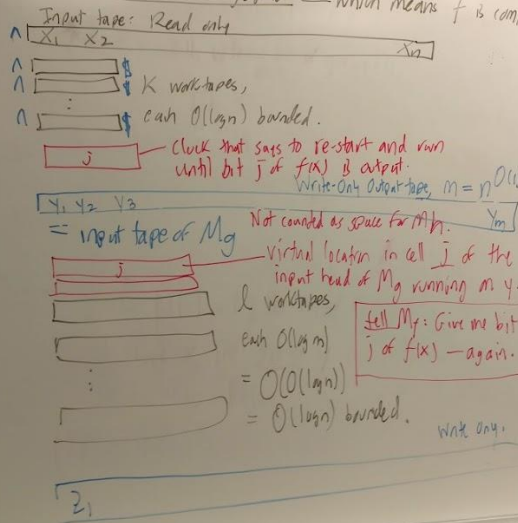 which means f is com
Input tape: Read only
^ X₁ X₂ Xn
^ $
^ $ K worktapes,
:
^ $ each O(log n) bounded.
j
Clock that says to re-start and run
until bit j of f(x) is output.
Write-Only Output tape, m = n^O(1
Y₁ Y₂ Y₃ Ym
Not counted as space for Mh.
= input tape of Mg
j
virtual location in cell j of the
input head of Mg running on y.
l worktapes,
tell Mf: Give me bit
j of f(x) — again.
each O(log m)
:
= O(O(log n))
= O(log n) bounded.
Write only.
Z₁